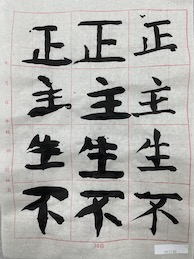 正正正
主主主
生生生
不不不